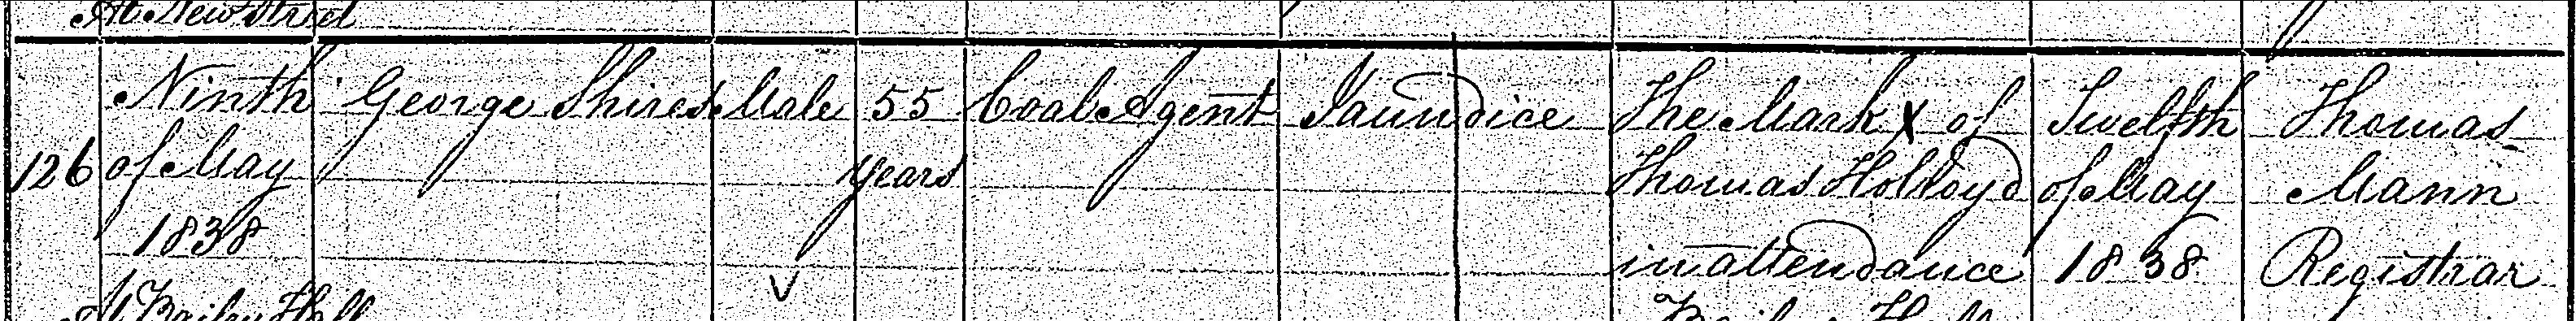 At New Street
Ninth George Shires Male 55 Coal Agent Jaundice The Mark X of Twelfth Thomas
126 of May years Thomas Holroyd of May Mann
1838 in attendance 1838 Registrar
At Bailey Hall Bailey Hall